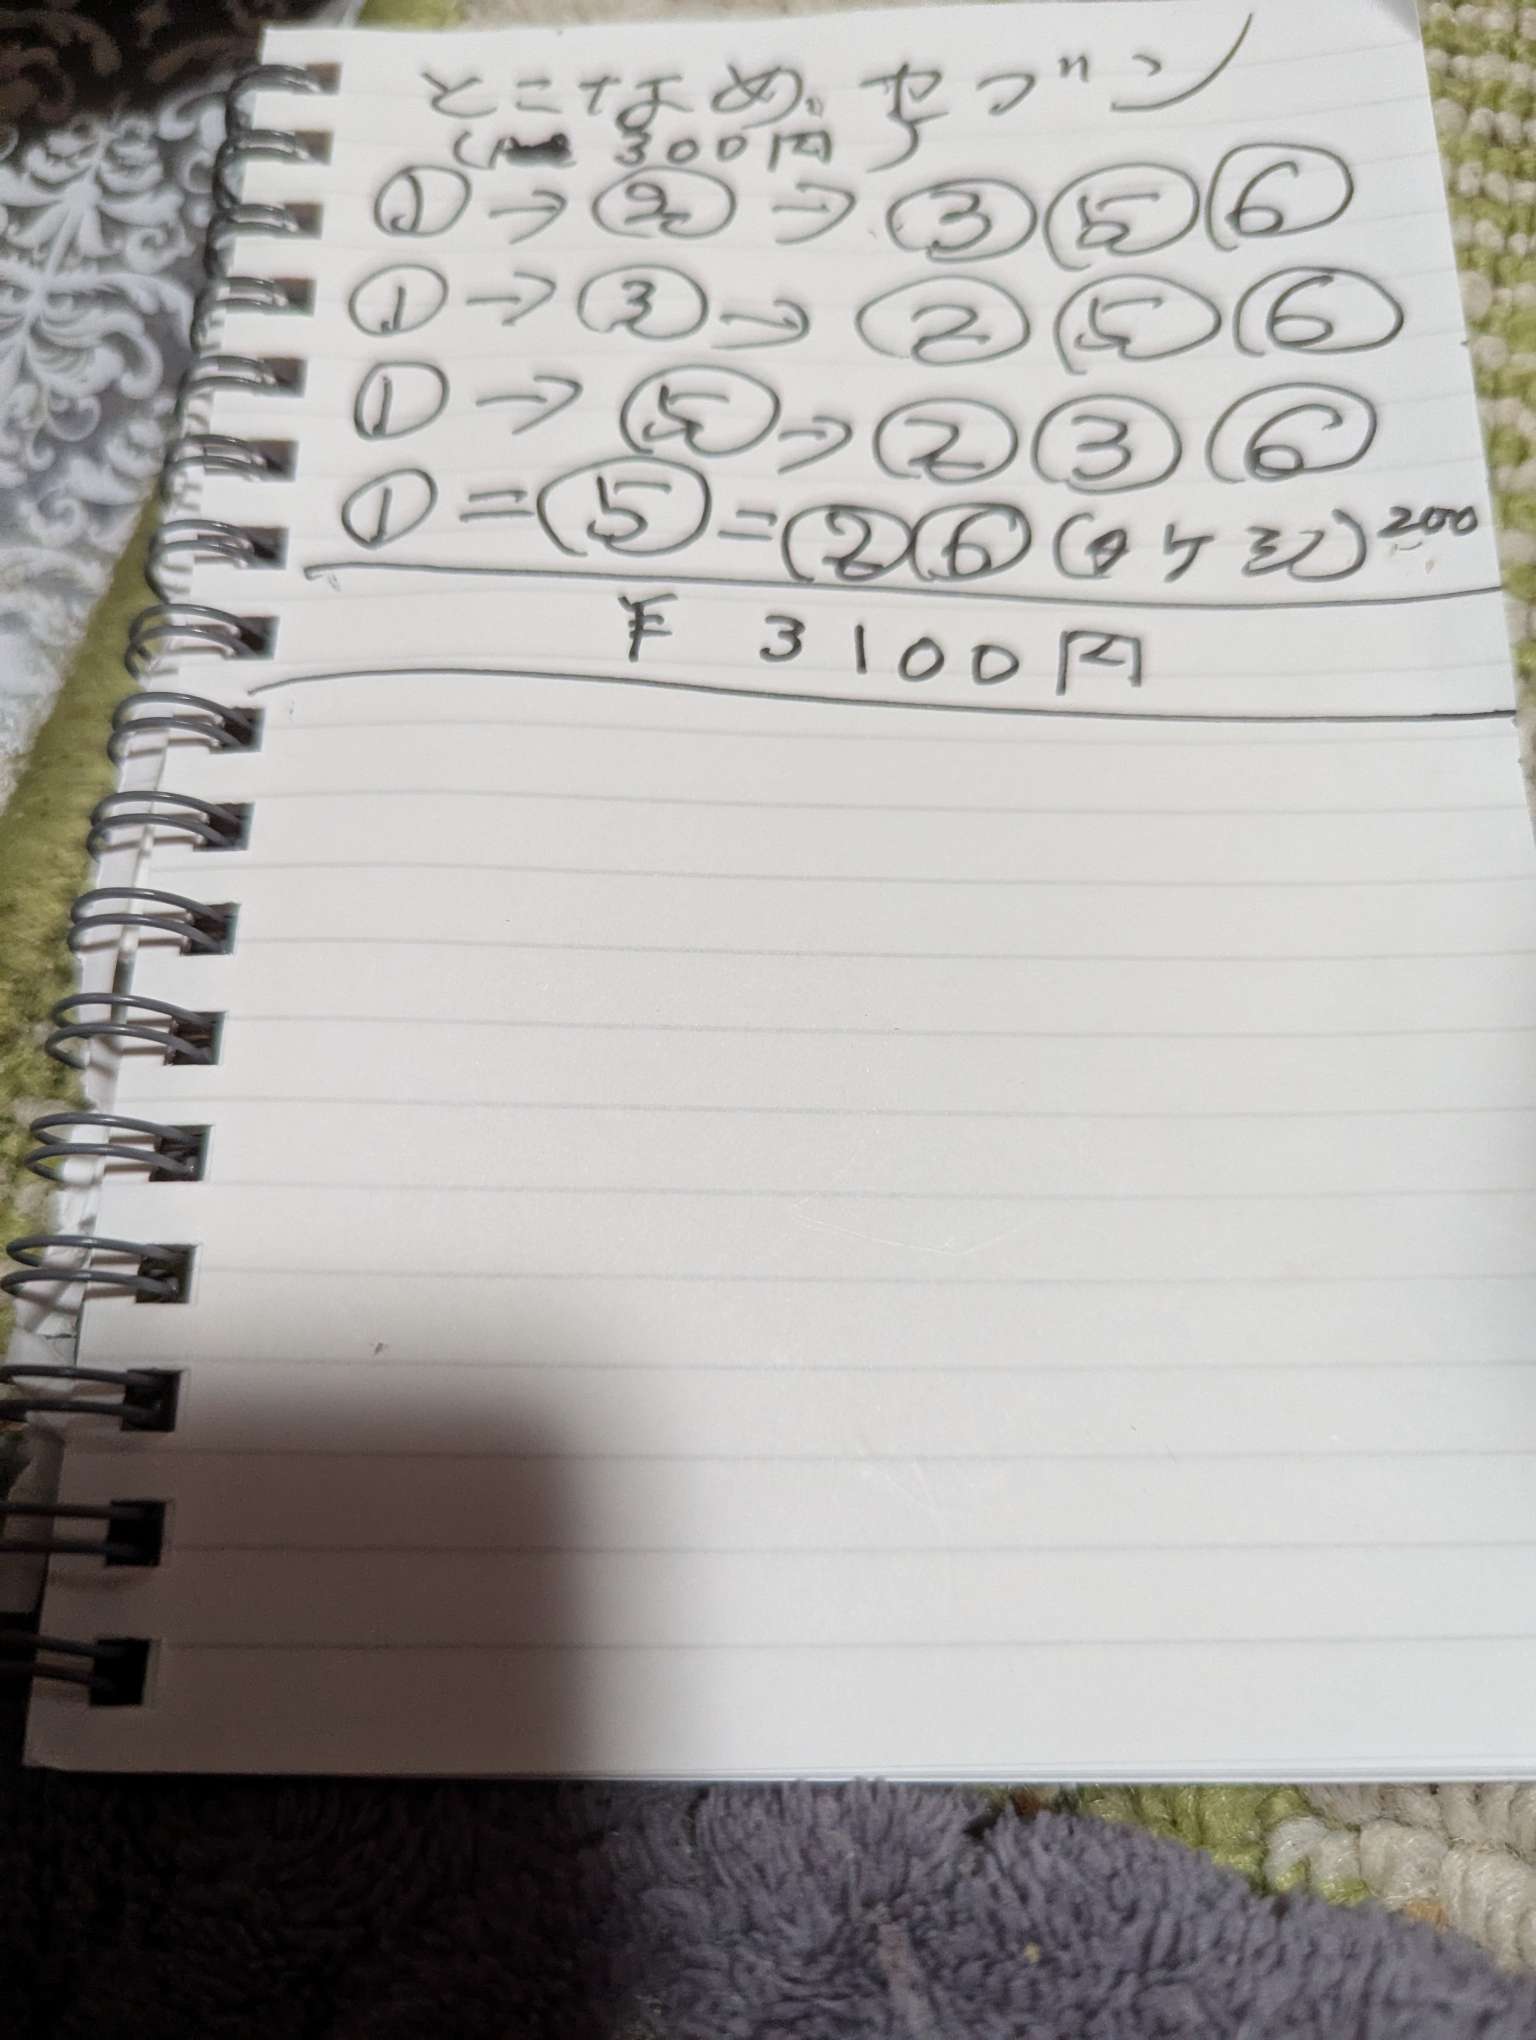 とこなめ、セブン
300円
①→②→③⑤⑥
①→③→②⑤⑥
①→⑤→②③⑥
①=⑤=②⑥ 200
¥ 3100円